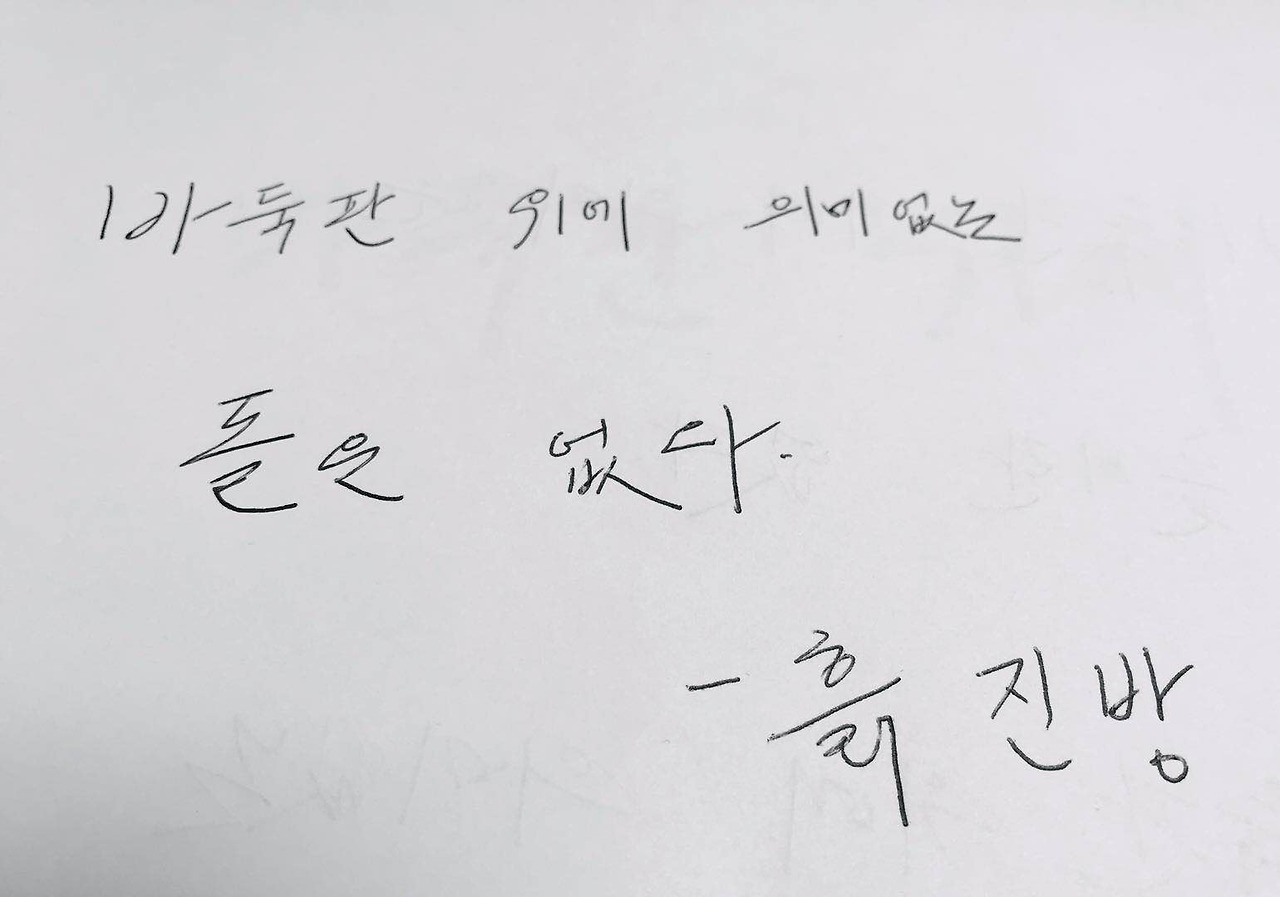 바둑판 위에 의미없는
돌은 없다.
- 흙진방